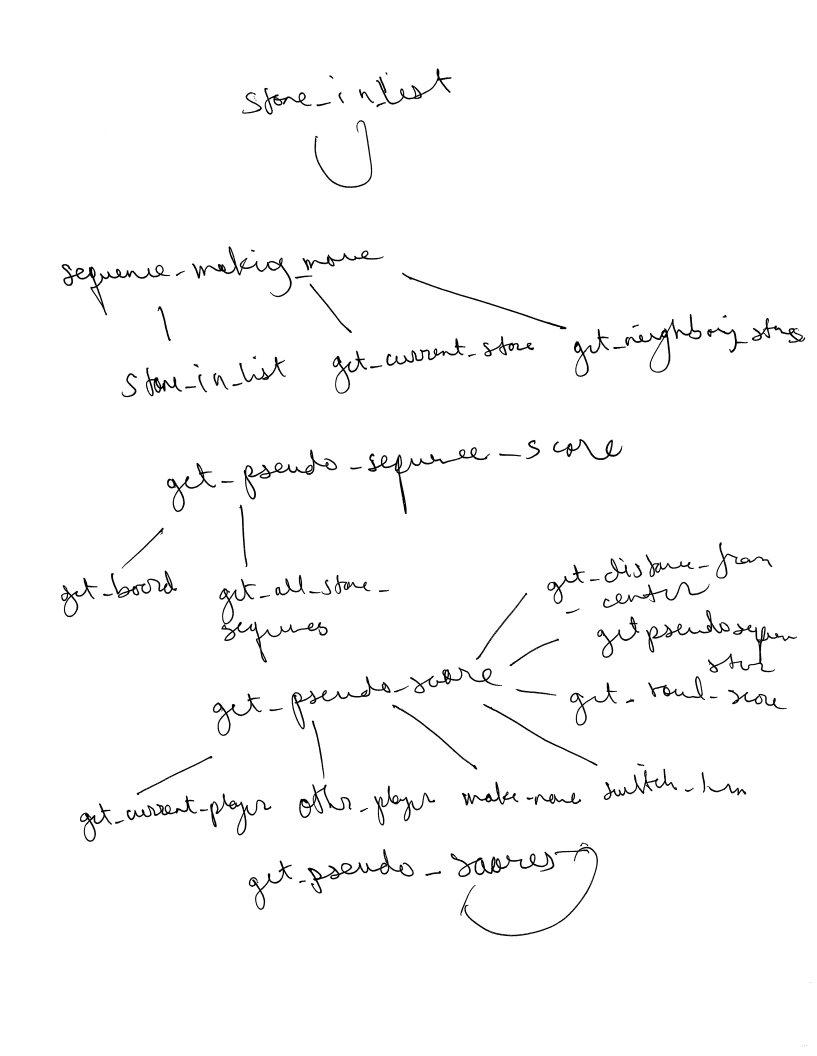 store_in_list
sequence_making_move
store_in_list get_current_store get_neighboring_stores
get_pseudo_sequence_score
get_board get_all_stone_
sequences
get_distance_from
_center
get pseudo sequen
get_pseudo_score
get_current_player other_player make_move switch_turn
get_pseudo_scores